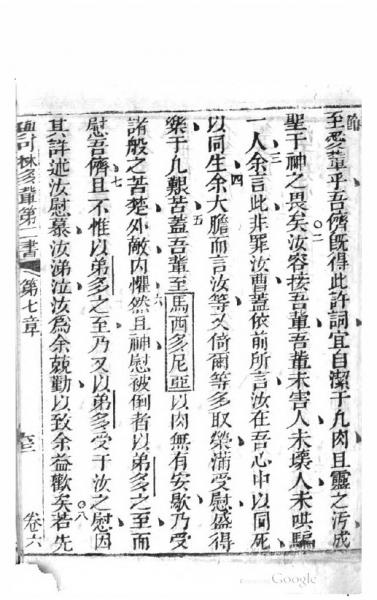 節
至愛輩乎吾儕既得此許詞宜自潔于凡肉且靈之污成
二
聖于神之畏矣汝容接吾輩吾輩未害人未壞人未哄騙
三
一人余言此非罪汝曹蓋依前所言汝在吾心中以同死
四
以同生余大膽而言汝等又倚爾等多取榮滿受慰盛得
五
樂于凡艱苦蓋吾輩至馬西多尼亞以肉無有安歇乃受
六
諸般之苦楚外敵內懼然且神慰被倒者以弟多之至而
七
慰吾儕且不惟以弟多之至乃又以弟多受于汝之慰因
八
其許述汝慰暴汝涕泣汝為余兢勤以致余益歡矣若先
可林多輩第二書 第七章 卷六
Google